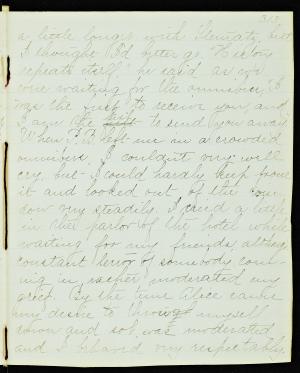 313
a little longer with Clematz, but
I thought I'd better go. "History
repeats itself," he said as we
were waiting for the omnibus, "I
was the first to receive you, and
I am the last to send you away."
When P. B. left me in a crowded
omnibus, I couldn't very well
cry, but I could hardly keep from
it and looked out of the win-
dow very steadily. I cried a little
in the parlor of the hotel while
waiting for my friends, altho'
constant terror of somebody com-
ing in rather moderated my
grief. By the time Alice came
my desire to throw myself
down and sob was moderated
and I behaved very respectably